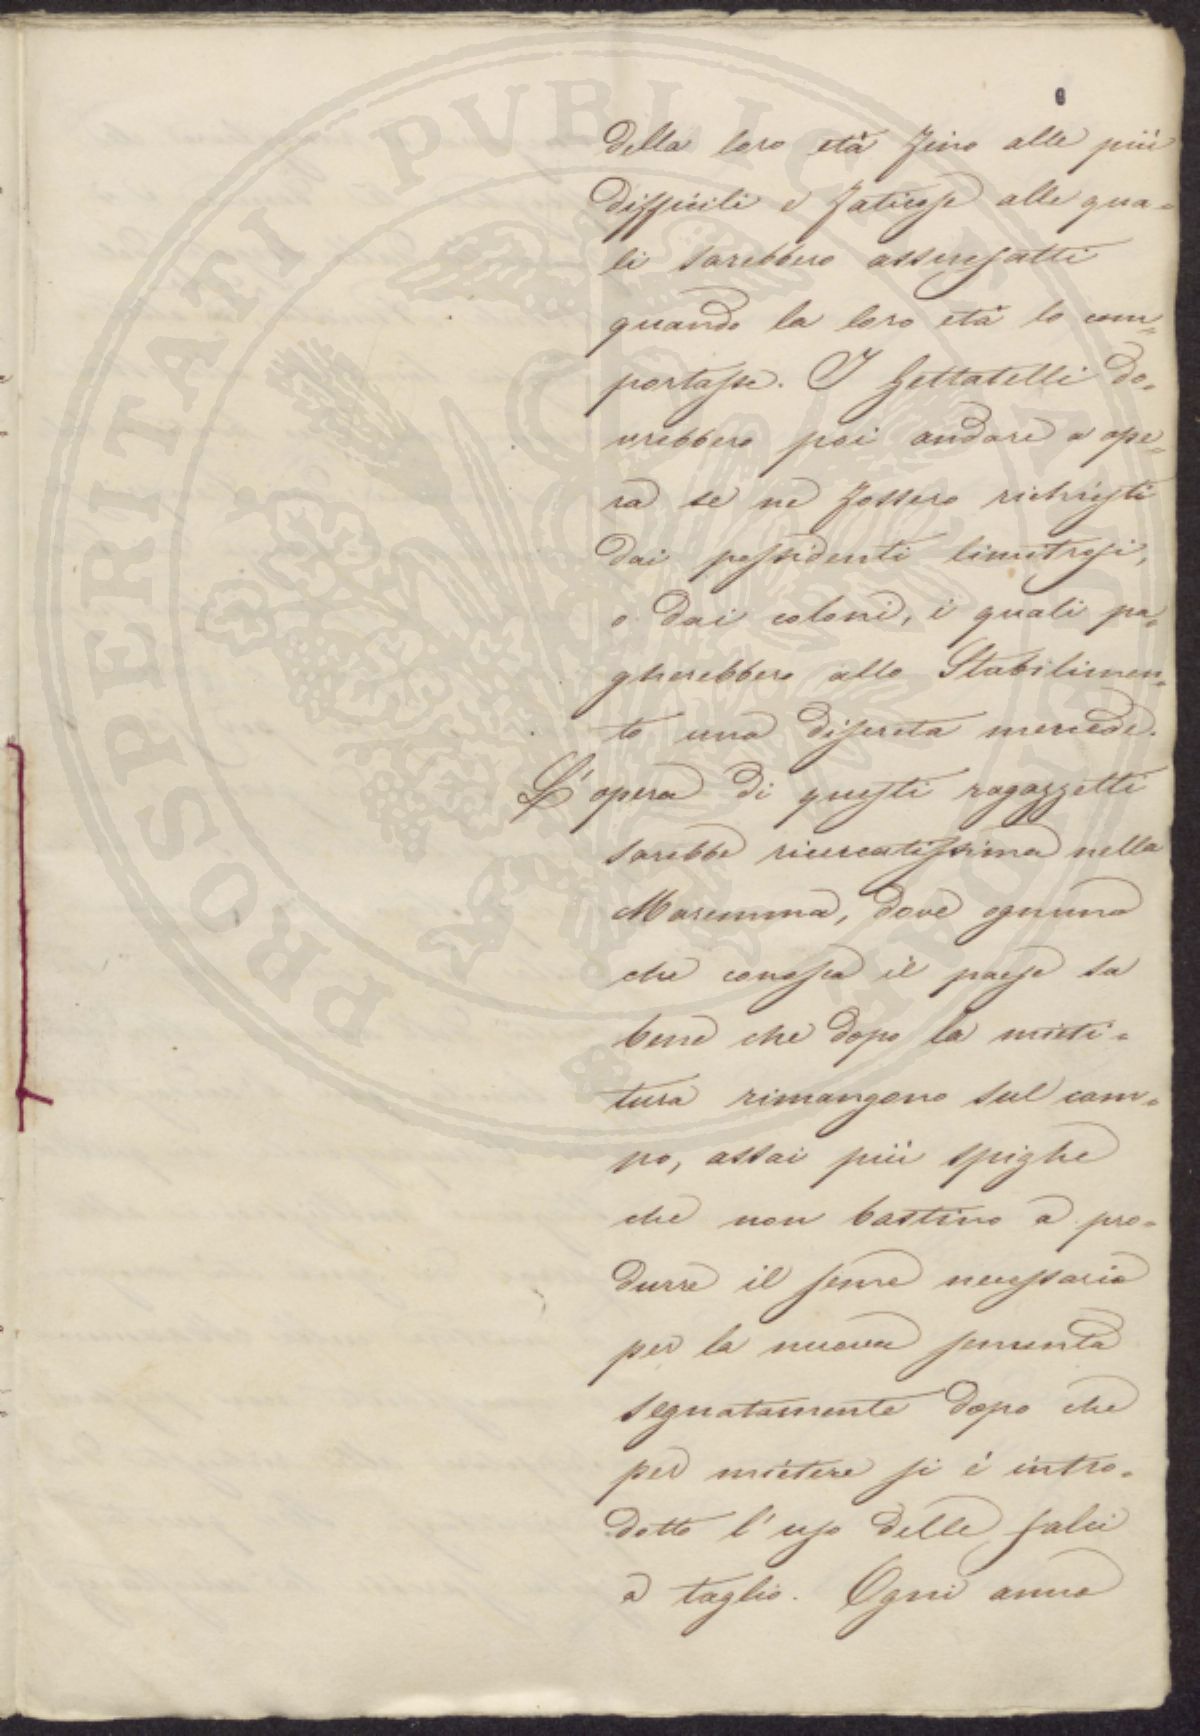 della loro età fino alle più
difficili e faticose alle qua=
li sarebbero assuefatti
quando la loro età lo com=
portasse. I Gettatelli do=
vrebbero poi andare a ope=
ra se ne fossero richiesti
dai possidenti limitrofi,
o dai coloni, i quali pa=
gherebbero allo Stabilimen=
to una discreta mercede.
L'opera di questi ragazzetti
sarebbe ricercatissima nella
Maremma, dove ognuno
che conosca il paese sa
bene che dopo la mieti=
tura rimangono sul cam=
po, assai più spighe
che non bastino a pro=
durre il seme necessario
per la nuova sementa
segnatamente dopo che
per mietere si è intro=
dotto l'uso delle falci
a taglio. Ogni anno
PROSPERITATI PUBLICAE AUGENDAE